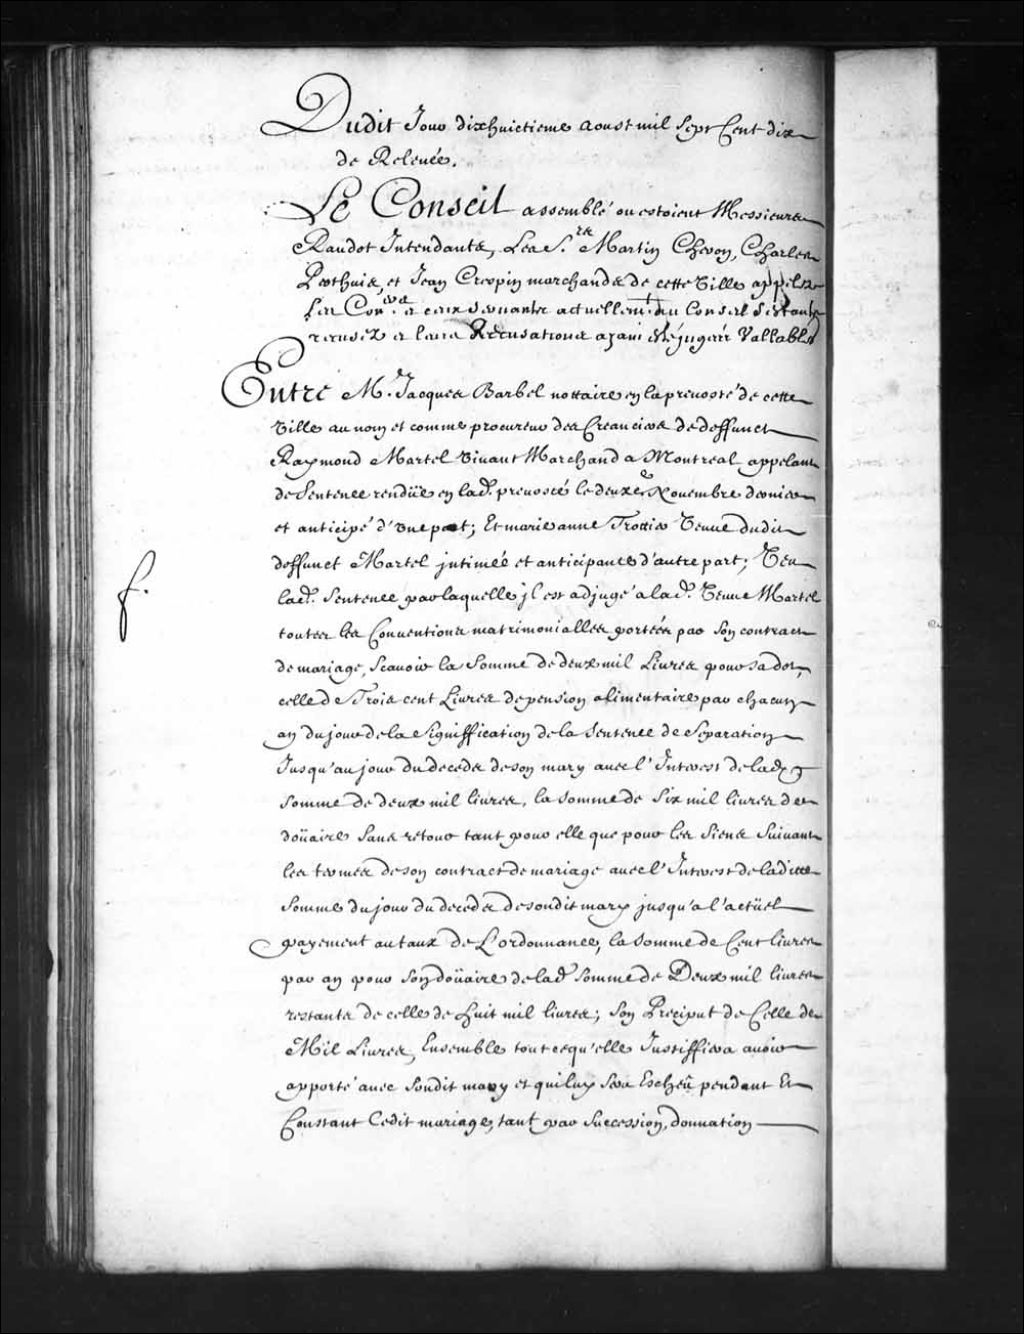 Dudit Jour dixhuictieme aoust mil Sept Cent dix
de Releuée.
Le Conseil assemblé ou estoient Messieurs
Raudot Intendants, Les S.rs Martin Cheron, Charles
Perthuis, et Jean Crespin marchands de cette Ville appelez
Les Con.ers et ceux seruants actuellem.t au Conseil s'estants
recusez et leurs Recusations ayant esté jugées Vallables
Entre M.e Jacques Barbel nottaire en la preuosté de cette
Ville au nom et comme procureur des Creanciers de deffunct
Raymond Martel Viuant Marchand a Montreal appelant
de Sentence rendüe en lad. preuosté le deuxe. Nouembre dernier
et anticipé d'vne part; Et marie anne Trottier Veuue dudit
deffunct Martel jntimée et anticipante d'autre part; Veu
lad. Sentence par laquelle jl est adjugé a lad. Veuue Martel
toutes les Conuentions matrimonialles portées par Son contract
de mariage, Scauoir la Somme de deux mil Liures pour sa dot,
celle de Trois cent Liures de pension alimentaire par chacun
an du jour de la Signiffication de la Sentence de Separation
Jusqu'au jour du deceds de son mary auec l'Interest de lad.
Somme de deux mil liures, la Somme de Six mil liures de
doüaire Sans retour tant pour elle que pour les Siens Suiuant
les termes de son contract de mariage auec l'Interest de laditte
Somme du jour du deceds de sondit mary jusqu'a l'actüel
payement au taux de L'ordonnance, la Somme de Cent liures
par an pour Son doüaire de lad. Somme de Deux mil liures
restante de celle de huit mil liures; Son Preciput de Celle de
Mil Liures, Ensemble tout ce qu'elle Justiffiera auoir
apporté auec Sondit mary et qui luy Sera Escheü pendant Et
Constant Cedit mariage, tant par Succession, donnation
f.